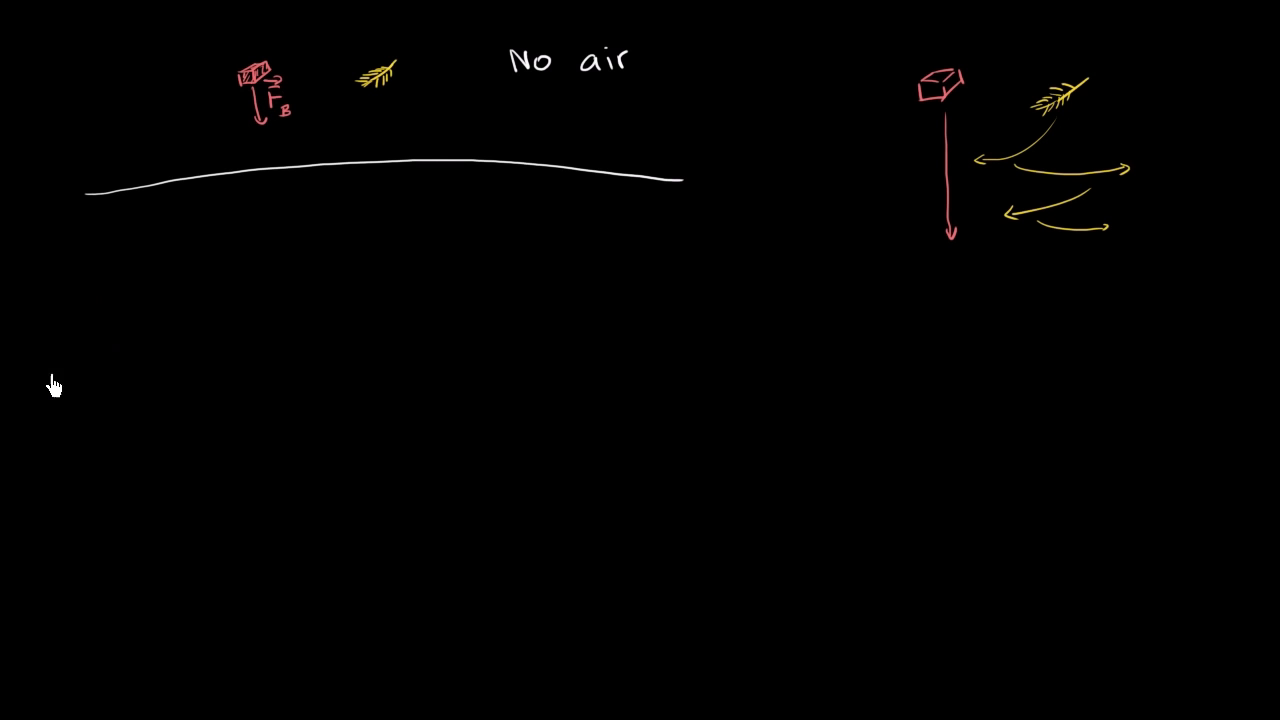 No air
F⃗_B